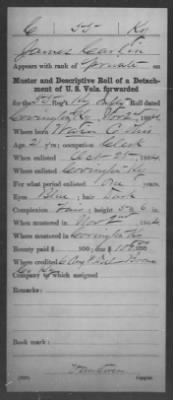 C 55 Ky
James Carlin
Appears with rank of Private on
Muster and Descriptive Roll of a Detach-
ment of U. S. Vols. forwarded
for the 55 Reg't Ky Inf'y Roll dated
Covington Ky Nov 2, 1864
Where born
Age 21 y'rs; occupation Clerk
When enlisted Oct 28, 1864
Where enlisted Covington Ky
For what period enlisted One years
Eyes Blue; hair Dark
Complexion Fair; height 5 ft. 6 in.
When mustered in Nov 2, 1864
Where mustered in Covington Ky
Bounty paid $ 100; due $ 100
Where credited
Company to which assigned
Remarks:
Book mark:
Copyist.